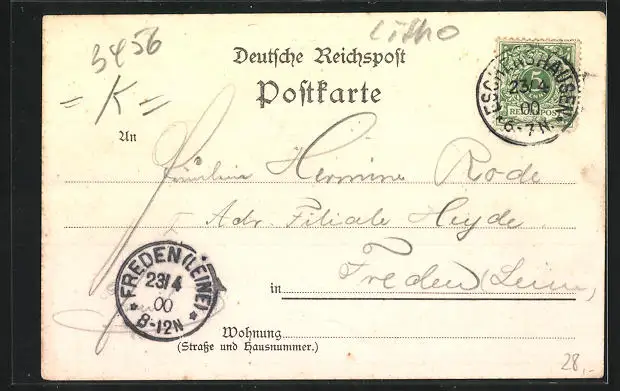 3456
Litho
= K =
Deutsche Reichspost
Postkarte
5
REICHSPOST
ESCHERSHAUSEN
23/4
00
*6-7N*
An
Fräulein Hermine Rode
Adr. Filiale Heyde
in Freden (Leine)
* FREDEN (LEINE) *
23/4
00
8-12N
Wohnung
(Straße und Hausnummer.)
28,-